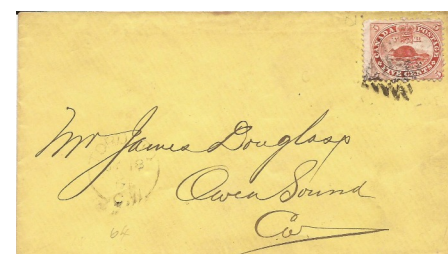 CANADA POSTAGE
FIVE CENTS
Mr James Douglass
Owen Sound
CW
64